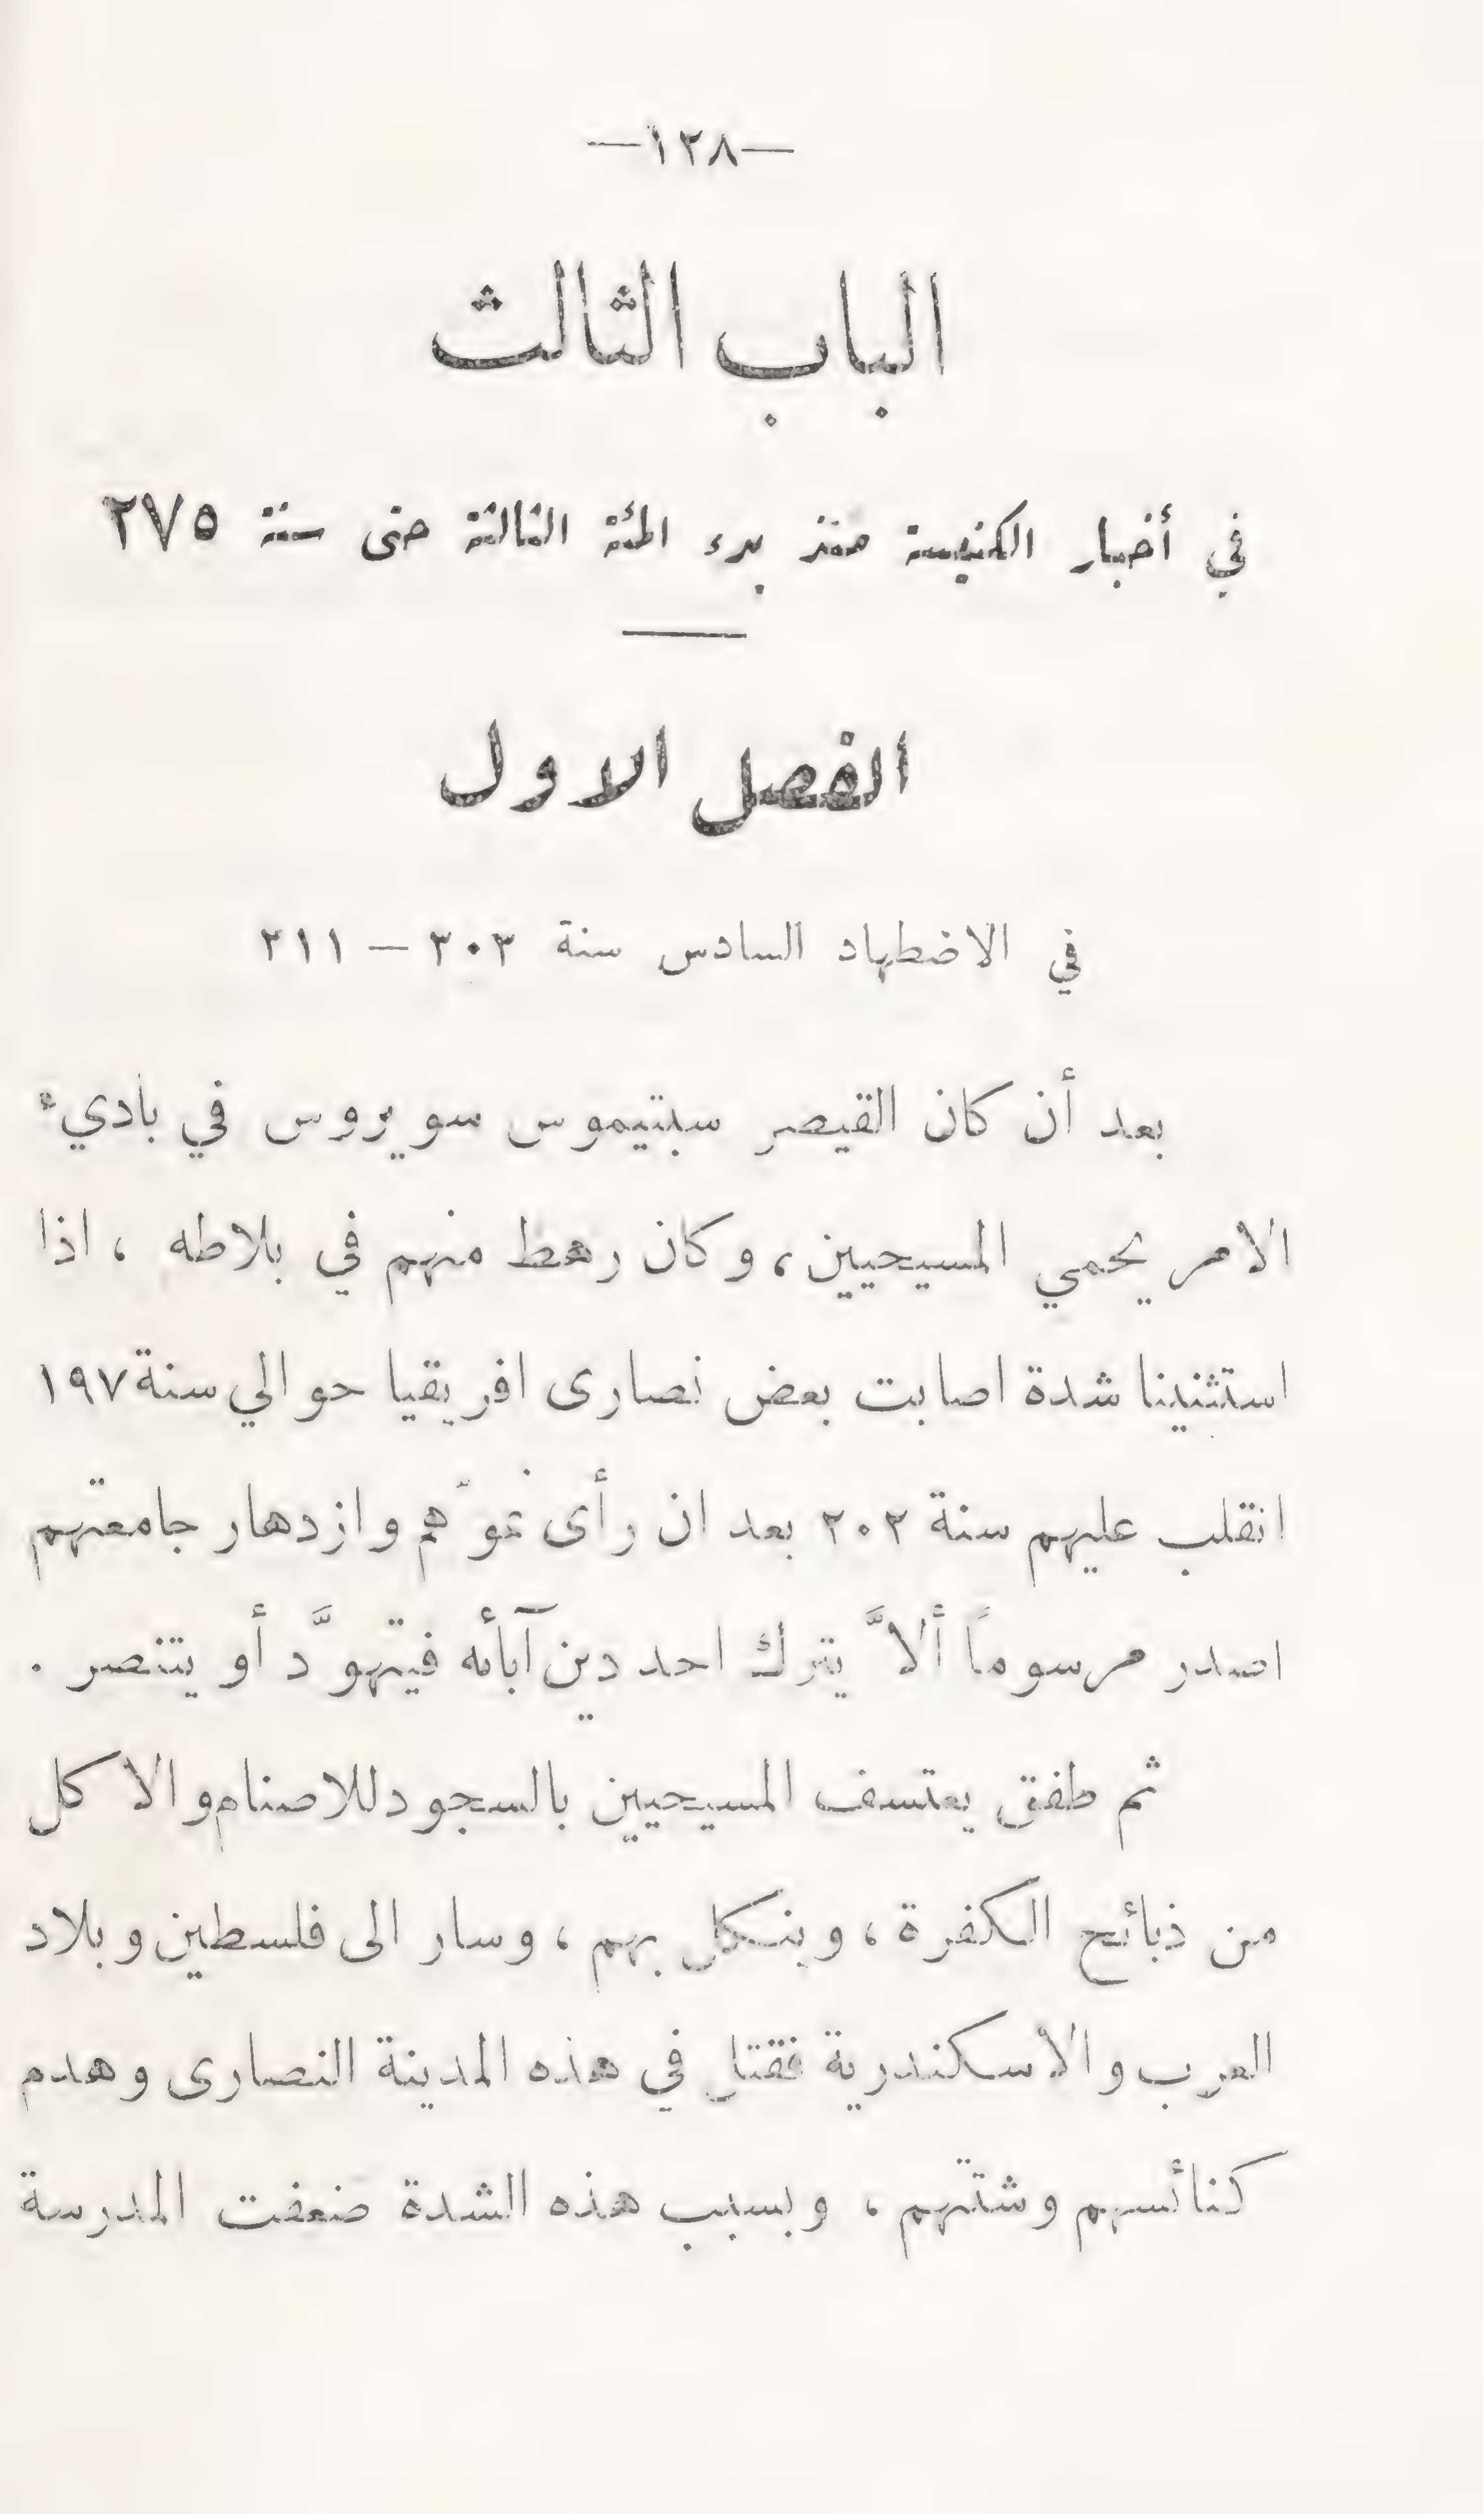 —١٢٨—
الباب الثالث
في أخبار الكنيسة منذ بدء المئة الثالثة حتى سنة ٢٧٥
الفصل الاول
في الاضطهاد السادس سنة ٣٠٣ – ٢١١
بعد أن كان القيصر سبتيموس سويروس في بادىء
الامر يحمي المسيحيين، وكان رهط منهم في بلاطه ، اذا
استثنينا شدة اصابت بعض نصارى افريقيا حوالي سنة ١٩٧
انقلب عليهم سنة ٢٠٢ بعد ان رأى نموَّهم وازدهار جامعتهم
اصدر مرسوماً ألاَّ يترك احد دين آبأئه فيتهوَّد أو يتنصر .
ثم طفق يعتسف المسيحيين بالسجود للاصنام والاكل
من ذبائح الكفرة ، وينكل بهم ، وسار الى فلسطين وبلاد
العرب والاسكندرية فقتل في هذه المدينة النصارى وهدم
كنائسهم وشتتهم ، وبسبب هذه الشدة ضعفت المدرسة